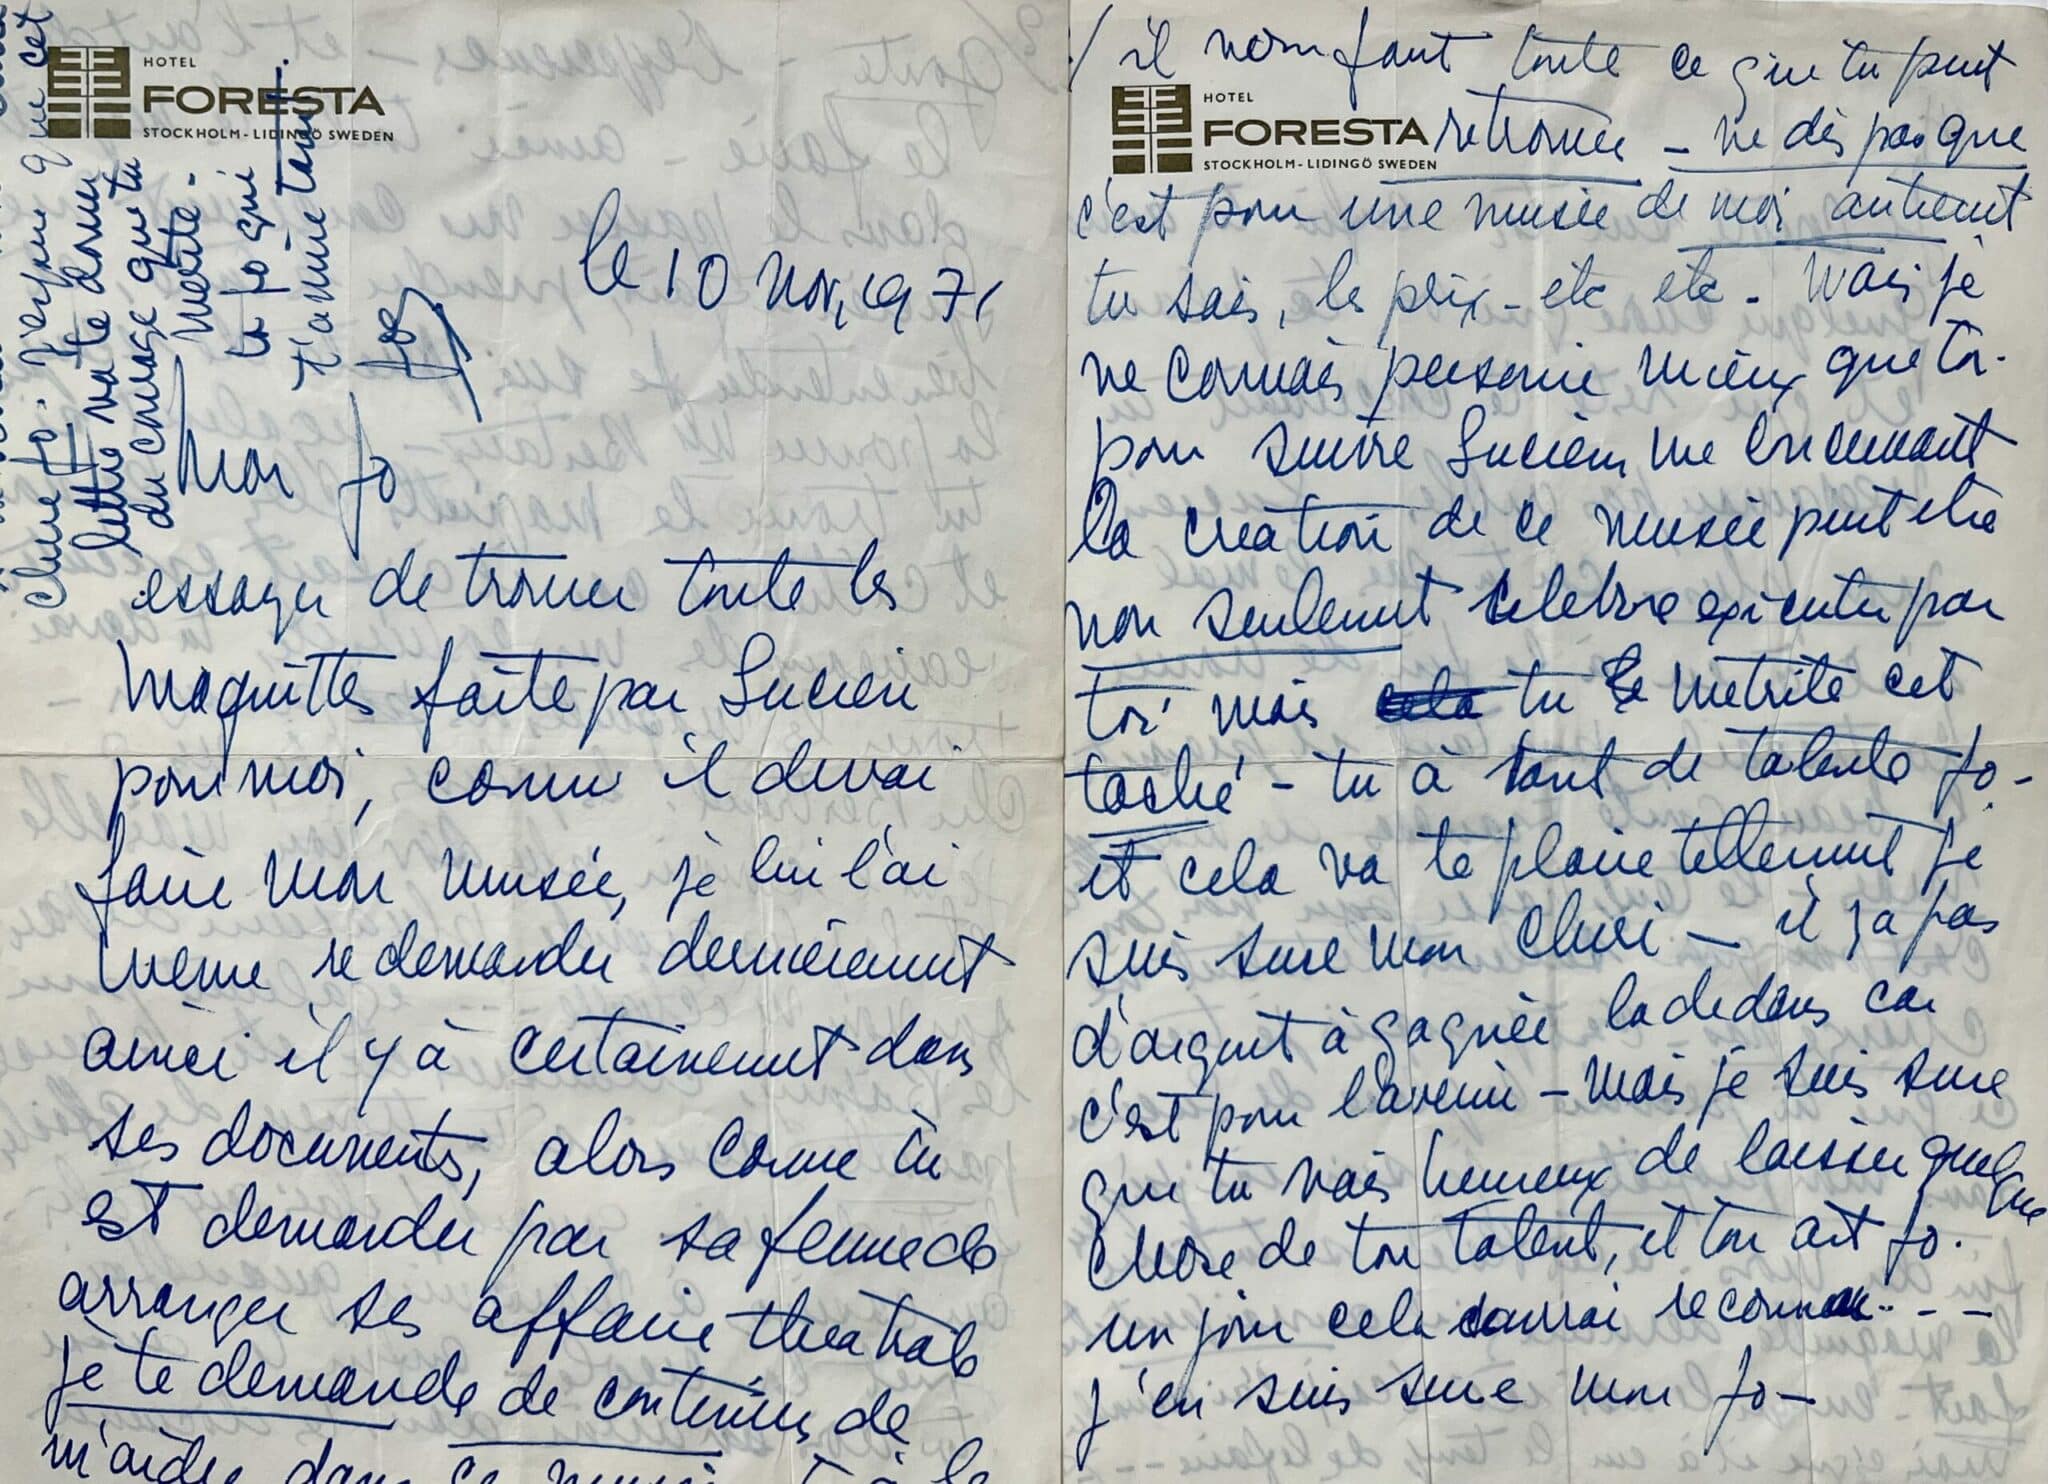 HOTEL
FORESTA
STOCKHOLM - LIDINGÖ SWEDEN
le 10 nov, 1971
Mon Jo
essayer de trouver toute les
maquettes faite par Lucien
pour moi, comme il devai
faire mon musée, je lui l'ai
même redemander dernièrement
ainsi il y à certainement dans
ses documents, alors comme tu
est demander par sa femme de
arranger ses affaire theatrale
je te demande de continuer de
m'aider dans ce musée et à le
cherie Jo. J'espère que cet
lettre va te donner
du courage que tu
merite.
ta Jo qui
t'aime tant.
Jos
il nous faut toute ce que tu peut
HOTEL
FORESTA
STOCKHOLM - LIDINGÖ SWEDEN
retrouver - ne dis pas que
c'est pour une musée de moi autrement
tu sais, les prix - etc etc - Mais je
ne connais personne mieux que toi
pour suivre Lucien, me concernant
la creation de ce musée peut etre
non seulement celebre executer par
toi mais cela tu le metrite cet
taché - tu à tant de talents Jo -
et cela va te plaire tellement je
suis sure mon cheri - il y a pas
d'argent à gagnée ladedans car
c'est pour l'avenir - mais je suis sure
que tu vais heureux de laisser quelque
chose de ton talent, et ton art Jo.
un jour cela saurrai reconnu - -
j'en suis sure mon Jo -